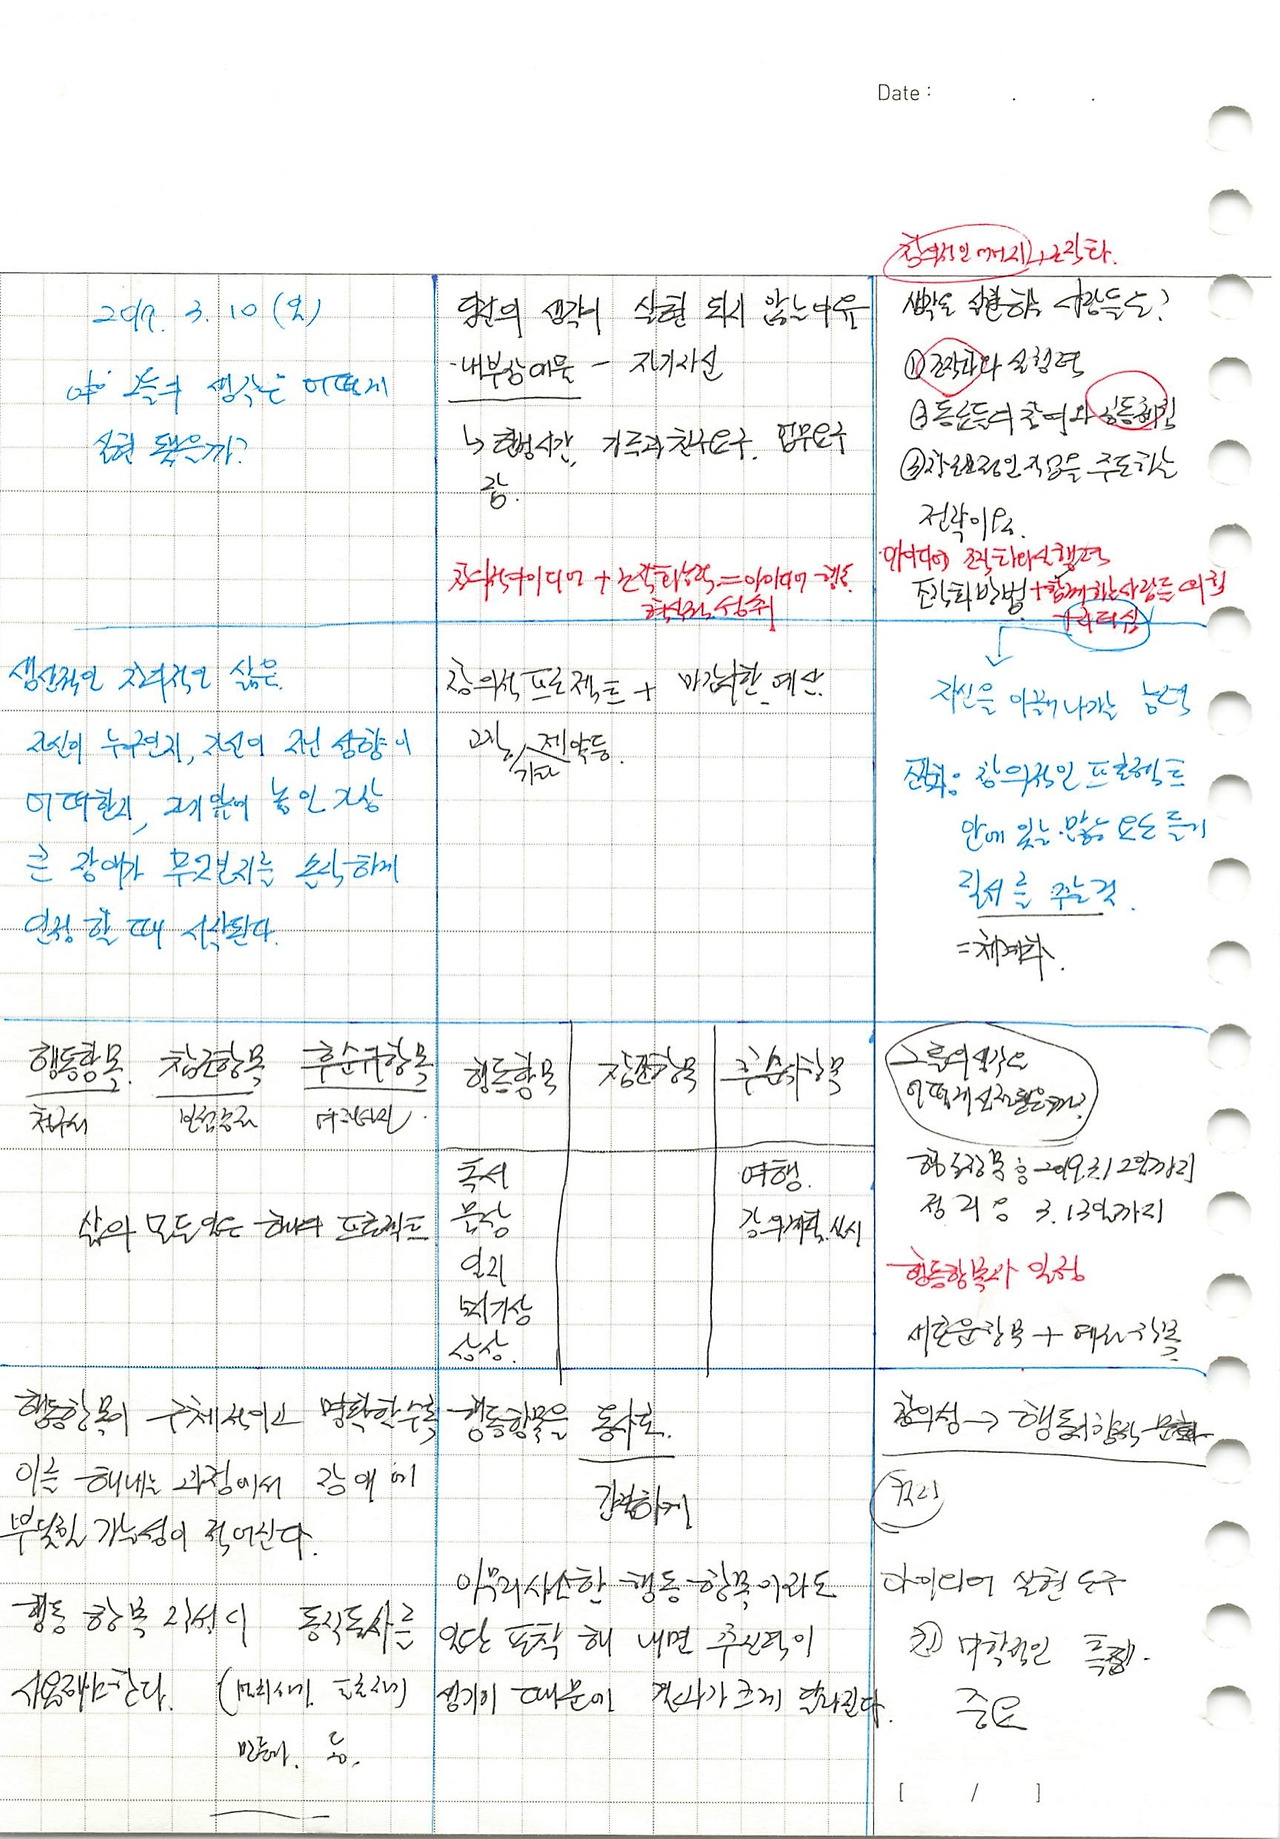 Date : . .
창의적인 에너지 + 조직화.
2019. 3. 10 (일)
그들의 생각은 어떻게
실현 됐을까?
당신의 생각이 실현 되지 않는 이유
·내부장애물 - 자기자신
↳ 현명시간, 가족과 친구요구. 업무요구
등.
창의적아이디어 + 조직화능력 = 아이디어 행동
혁신적 성취
생각을 실현하는 사람들은?
① 조직화와 실행력
② 동료들의 참여와
③ 창의적인 작업을 주도하는
전략이요.
아이디어 조직화와 실행력
조직화방법 + 함께하는 사람들의 힘
+ 리더십
생산적인 창의적인 삶은.
자신이 누구인지, 자신이 지닌 성향이
어떠한지, 자기 앞에 놓인 가장
큰 장애가 무엇인지를 솔직하게
인정 할 때 시작된다.
창의적 프로젝트 + 마감시한. 예산.
고정, 제약등.
기타
자신을 이끌어 나가는 능력
조직화: 창의적인 프로젝트
안에 있는 많은 요소들기
질서를 주는 것.
= 체계화.
행동항목. 참조항목 후순위항목
삶의 모든일은 하나의 프로젝트
행동항목 참조항목 후순위항목
독서 여행.
문장 강의계획. 실시
일기
상상.
그들의 생각은
어떻게 실현됐을까?
행동항목: 2019.3.12일까지
정리: 3.13일까지
행동항목과 일정
새로운항목 + 항목
행동항목이 구체적이고 명확할수록
이를 해내는 과정에서 장애에
부딪힐 가능성이 적어진다.
행동 항목 동작동사를
사용해야한다.
만들다. 등.
행동항목은 동사로.
간결하게
아무리사소한 행동 항목이라도
일단 포착 해 내면 추진력이
생기기 때문에 결과가 크게 달라진다.
창의성 → 행동지향적 문화
아이디어 실현 도구
미학적인 특징.
중요
[ / ]